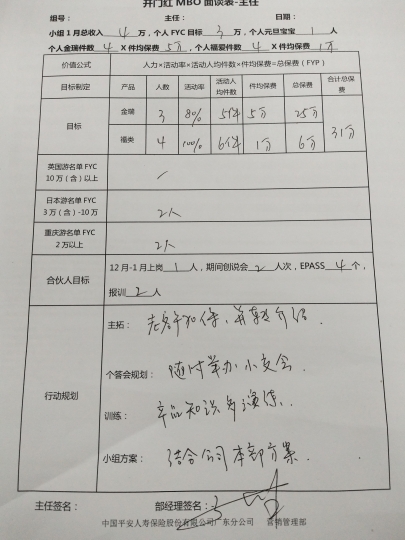 开门红 MBO 面谈表-主任
组号： 主任： 日期：
小组 1 月总收入 4 万，个人 FYC 目标 3 万，个人元旦宝宝 1 人
个人金瑞件数 4 X 件均保费 5万，个人福爱件数 4 X 件均保费 1万
价值公式 人力×活动率×活动人均件数×件均保费=总保费（FYP）
目标制定 产品 人数 活动率 活动人均件数 件均保费 总保费 合计总保费
目标 金瑞 3 80% 5件 5万 25万 31万
福类 4 100% 6件 1万 6万
英国游名单 FYC 10 万（含）以上 /
日本游名单 FYC 3 万（含）-10 万 2人
重庆游名单 FYC 2 万以上 2人
合伙人目标 12 月-1 月上岗 1 人，期间创说会 2 人次，EPASS 4 个，
报训 2 人
行动规划 主拓： 老客户加保、兼转介绍.
个答会规划： 随时举办小交会
训练： 产品知识多演练.
小组方案： 结合公司本部方案.
主任签名： 部经理签名：
中国平安人寿保险股份有限公司广东分公司 营销管理部